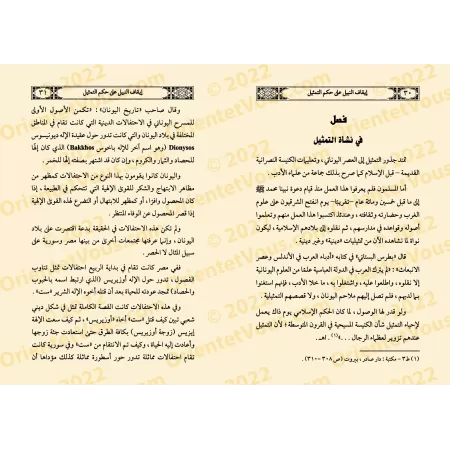 ٣٠ إيقاف النبيل على حكم التمثيل
فصل
في نشأة التمثيل
تمتد جذور التمثيل إلى العصر اليوناني، وتعليمات الكنيسة النصرانية
القديمة – قبل الإسلام كما صرح بذلك جماعة من علماء الأدب.
أما المسلمون فلم يعرفوا هذا العمل منذ قيام دعوة نبينا محمد ﷺ
إلى ما قبل خمسين ومائة عام –تقريبا– يوم انفتح الشرقيون على علوم
الغرب وحضارته وثقافته، وعندئذ اكتسبوا هذا العمل منهم وتعلموا
أصوله وقواعده في مدارسهم، ثم نقلوه إلى بلادهم الإسلامية، ليكون
نواة لما نشاهده الآن من تمثيليات «دينية» وغير دينية.
يقول «بطرس البستاني» في كتابه «أدباء العرب في الأندلس وعصر
الانبعاث»: «لم يترك العرب في الدولة العباسية علما من العلوم اليونانية
إلا نقلوه، واطلعوا عليه، واشتغلوا به، ما خلا الأدب، فإنهم استغنوا
بما لديهم، فلم تصل إليهم ملاحم اليونان، ولا قصصهم التمثيلية.
ولو قدر لها الوصول، لما كان الحكم الإسلامي يوم ذاك يعمل
لإحياء التمثيل شأن الكنيسة المسيحية في القرون المتوسطة؛ لأن التمثيل
عندهم تزوير لعظماء الرجال ...»(١). اهـ.
(١) ط٣ – مكتبة: دار صادر، بيروت (ص٣٠٨–٣١٠).
إيقاف النبيل على حكم التمثيل ٣١
وقال صاحب «تاريخ اليونان»: «تكمن الأصول الأولى
للمسرح اليوناني في الاحتفالات الدينية التي كانت تقام في المناطق
المختلفة في بلاد اليونان والتي كانت تدور حول عقيدة الإله ديونيسوس
Dionysos (وهو اسم آخر للإله باخوس Bakkhos) الذي كان إلها
للحصاد والثمار والكروم، وإن كان قد اشتهر بصفته إلها للخمر.
واليونان كانوا يقومون بهذا النوع من الاحتفالات كمظهر من
مظاهر الابتهاج والشكر للقوى الإلهية التي تتحكم في الطبيعة، إذا
كان المحصول وافرا، أو كمظهر للابتهال أو التضرع لهذه القوى الإلهية
إذا قصر المحصول عن الوفاء المنتظر.
ولم تكن هذه الاحتفالات في الحقيقة بدعة اقتصرت على بلاد
اليونان، وإنما عرفتها مجتمعات أخرى من بينها مصر وسورية على
سبيل المثال لا الحصر.
ففي مصر كانت تقام في بداية الربيع احتفالات تمثل تناوب
الفصول، تدور حول الإله أوزيريس (الذي ارتبط اسمه بالحبوب
والحصاد) تمجد عودته للحياة بعد أن قتله أخوه الإله الشرير «ست».
وفي هذه الاحتفالات كانت القصة الكاملة تمثل في شكل ديني
شعبي تبين كيف قتل «ست» أخاه «أوزيريس»، ثم كيف سعت الإلهة
إيزيس (زوجة أوزيريس) بكافة الطرق حتى استعادت جثة زوجها
وأعادت إليه الحياة، وكيف تم الانتقام من «ست» وفي سورية كانت
تقام احتفالات مماثلة تدور حول أسطورة مماثلة كذلك مؤداها أن
© 2022
OrientetVous